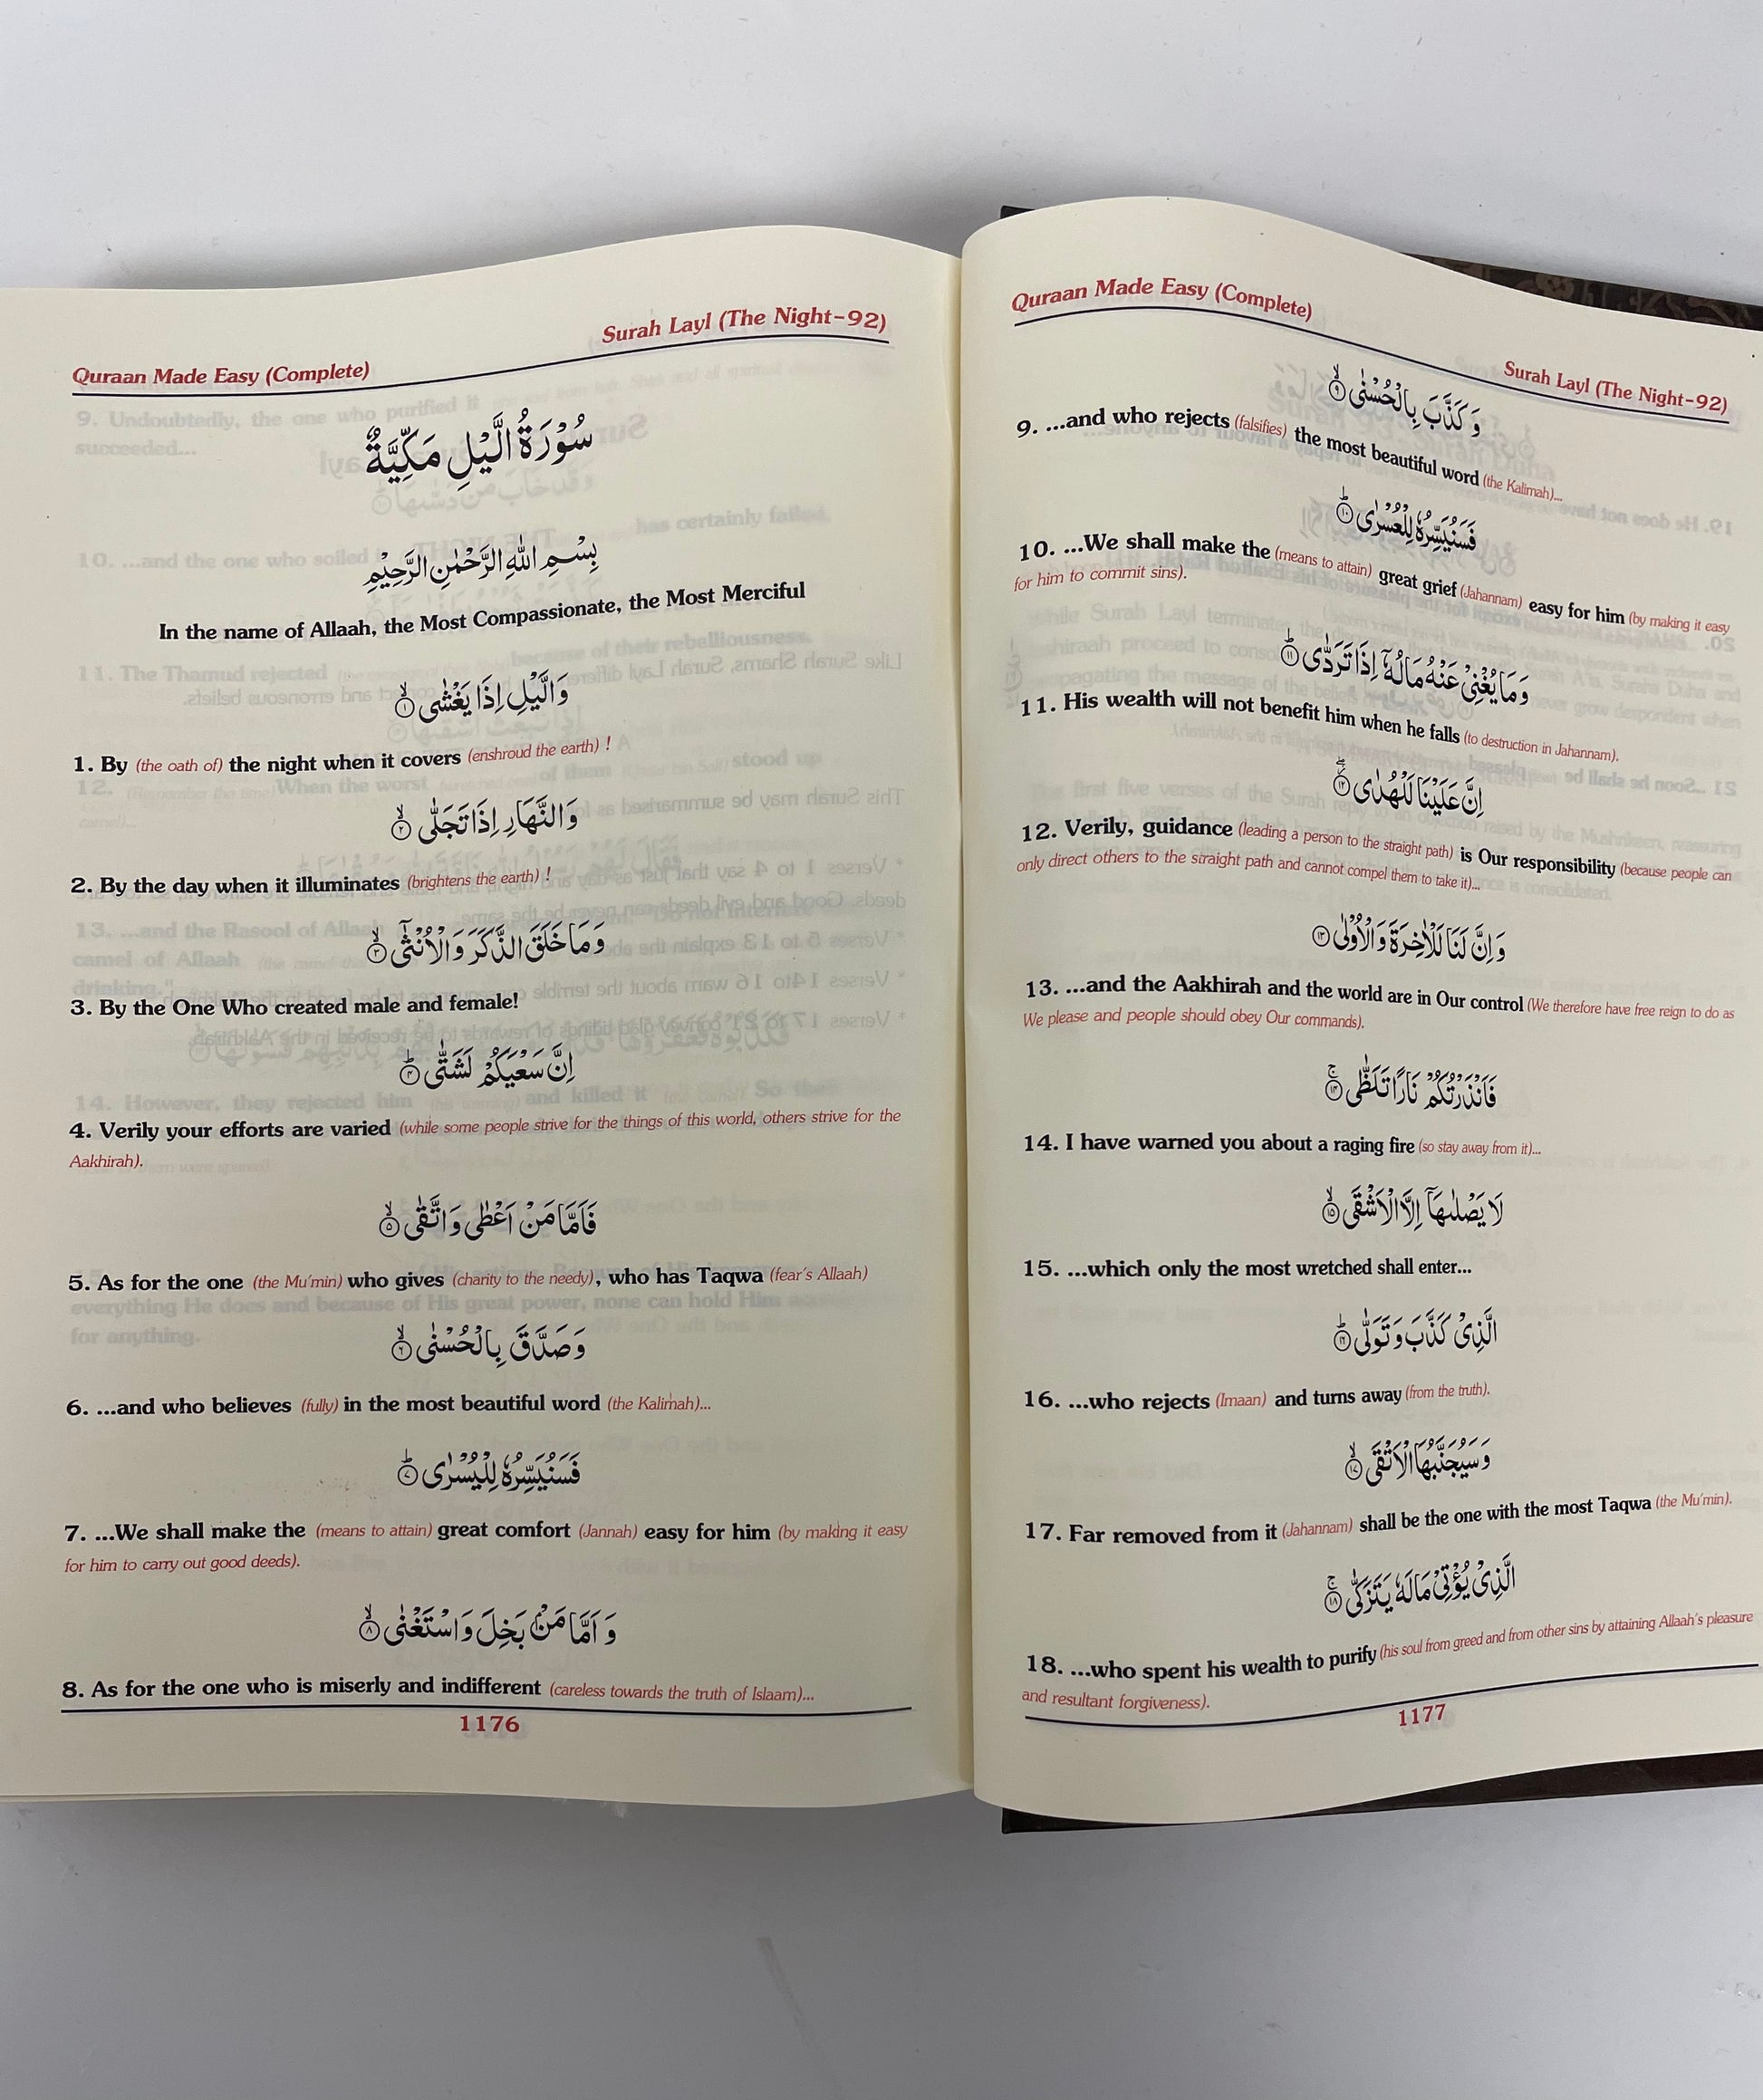 Quraan Made Easy (Complete)
Surah Layl (The Night-92)
سُوْرَةُ الَّيْلِ مَكِّيَّةٌ
بِسْمِ اللّٰهِ الرَّحْمٰنِ الرَّحِيْمِ
In the name of Allaah, the Most Compassionate, the Most Merciful
وَالَّيْلِ اِذَا يَغْشٰى ۙ﴿۱﴾
1. By (the oath of) the night when it covers (enshroud the earth) !
وَالنَّهَارِ اِذَا تَجَلّٰى ۙ﴿۲﴾
2. By the day when it illuminates (brightens the earth) !
وَمَا خَلَقَ الذَّكَرَ وَالْاُنْثٰٓى ۙ﴿۳﴾
3. By the One Who created male and female!
اِنَّ سَعْيَكُمْ لَشَتّٰى ؕ﴿۴﴾
4. Verily your efforts are varied (while some people strive for the things of this world, others strive for the
Aakhirah).
فَاَمَّا مَنْ اَعْطٰى وَاتَّقٰى ۙ﴿۵﴾
5. As for the one (the Mu'min) who gives (charity to the needy), who has Taqwa (fear's Allaah)
وَصَدَّقَ بِالْحُسْنٰى ۙ﴿۶﴾
6. ...and who believes (fully) in the most beautiful word (the Kalimah)...
فَسَنُيَسِّرُهٗ لِلْيُسْرٰى ؕ﴿۷﴾
7. ...We shall make the (means to attain) great comfort (Jannah) easy for him (by making it easy
for him to carry out good deeds).
وَاَمَّا مَنْۢ بَخِلَ وَاسْتَغْنٰى ۙ﴿۸﴾
8. As for the one who is miserly and indifferent (careless towards the truth of Islaam)...
1176
Quraan Made Easy (Complete)
Surah Layl (The Night-92)
وَكَذَّبَ بِالْحُسْنٰى ۙ﴿۹﴾
9. ...and who rejects (falsifies) the most beautiful word (the Kalimah)...
فَسَنُيَسِّرُهٗ لِلْعُسْرٰى ؕ﴿۱۰﴾
10. ...We shall make the (means to attain) great grief (Jahannam) easy for him (by making it easy
for him to commit sins).
وَمَا يُغْنِيْ عَنْهُ مَالُهٗٓ اِذَا تَرَدّٰى ؕ﴿۱۱﴾
11. His wealth will not benefit him when he falls (to destruction in Jahannam).
اِنَّ عَلَيْنَا لَلْهُدٰى ۖ﴿۱۲﴾
12. Verily, guidance (leading a person to the straight path) is Our responsibility (because people can
only direct others to the straight path and cannot compel them to take it)...
وَاِنَّ لَنَا لَلْاٰخِرَةَ وَالْاُوْلٰى ﴿۱۳﴾
13. ...and the Aakhirah and the world are in Our control (We therefore have free reign to do as
We please and people should obey Our commands).
فَاَنْذَرْتُكُمْ نَارًا تَلَظّٰى ۚ﴿۱۴﴾
14. I have warned you about a raging fire (so stay away from it)...
لَا يَصْلٰىهَآ اِلَّا الْاَشْقَى ۙ﴿۱۵﴾
15. ...which only the most wretched shall enter...
الَّذِيْ كَذَّبَ وَتَوَلّٰى ؕ﴿۱۶﴾
16. ...who rejects (Imaan) and turns away (from the truth).
وَسَيُجَنَّبُهَا الْاَتْقَى ۙ﴿۱۷﴾
17. Far removed from it (Jahannam) shall be the one with the most Taqwa (the Mu'min).
الَّذِيْ يُؤْتِيْ مَالَهٗ يَتَزَكّٰى ۚ﴿۱۸﴾
18. ...who spent his wealth to purify (his soul from greed and from other sins by attaining Allaah's pleasure
and resultant forgiveness).
1177